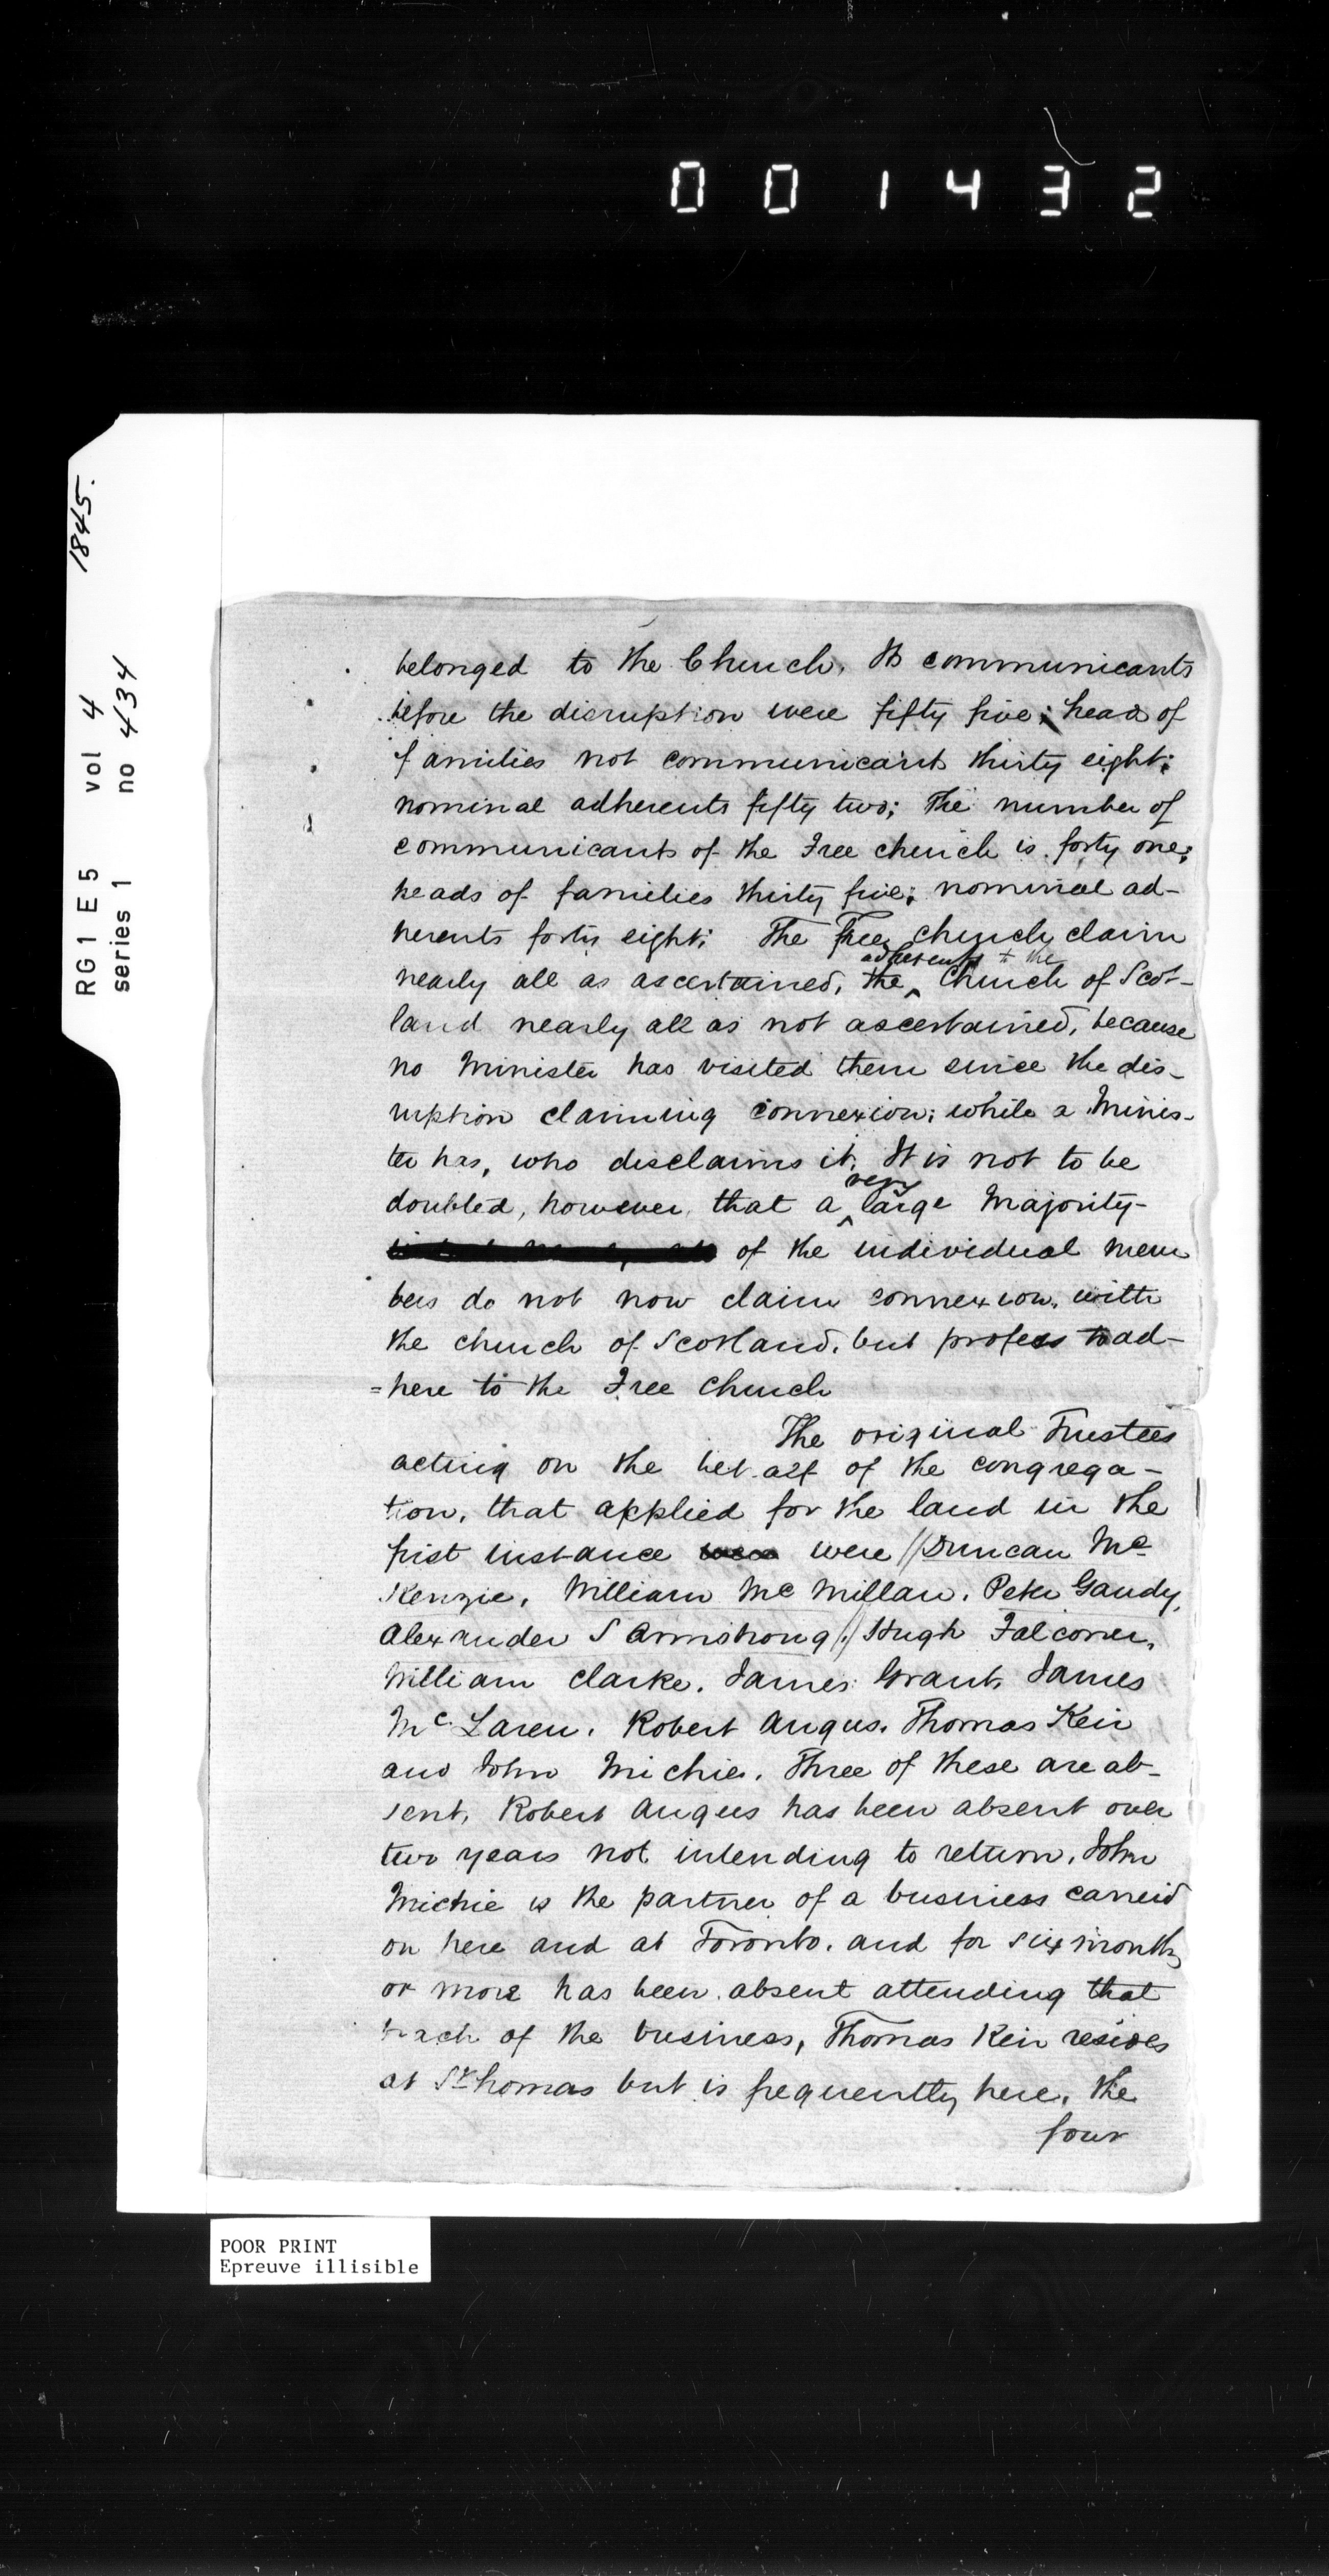 001432
1845.
RG1 E5 vol 4
series 1 no 434
belonged to the Church. Its communicants
before the disruption were fifty five; head of
families not communicants thirty eight;
nominal adherents fifty two; The number of
communicants of the Free church is forty one;
heads of families thirty five; nominal ad-
herents forty eight; The Free church claim
adherents to the
nearly all as ascertained, the Church of Scot-
land nearly all as not ascertained, because
no Minister has visited them since the dis-
ruption claiming connexion; while a Minis-
ter has, who disclaims it. It is not to be
very
doubted, however, that a large Majority-
of the individual mem
bers do not now claim connexion with
the church of Scotland, but profess to ad-
=here to the Free Church
The original Trustees
acting on the behalf of the congrega-
tion, that applied for the land in the
first instance were // Duncan Mc
Kenzie, William Mc Millan, Peter Gandy,
Alexander S Armstrong, // Hugh Falconer,
William Clarke, James Grant, James
Mc Laren, Robert Angus, Thomas Keir
and John Michie. Three of these are ab-
sent, Robert Angus has been absent over
two years not intending to return, John
Michie is the partner of a business carreid
on here and at Toronto, and for six months
or more has been absent attending that
brach of the business, Thomas Keir resides
at St homas but is frequently here, the
four
POOR PRINT
Epreuve illisible